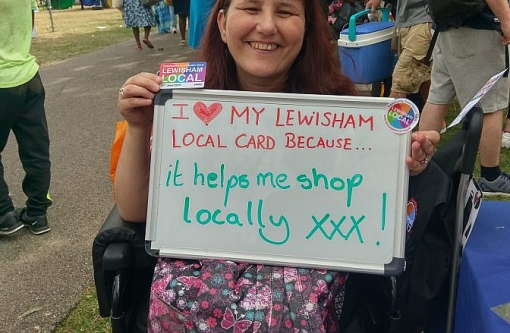 LEWISHAM
LOCAL
I ❤ MY LEWISHAM
LOCAL CARD BECAUSE...
LOCAL
it helps me shop
locally xxx!